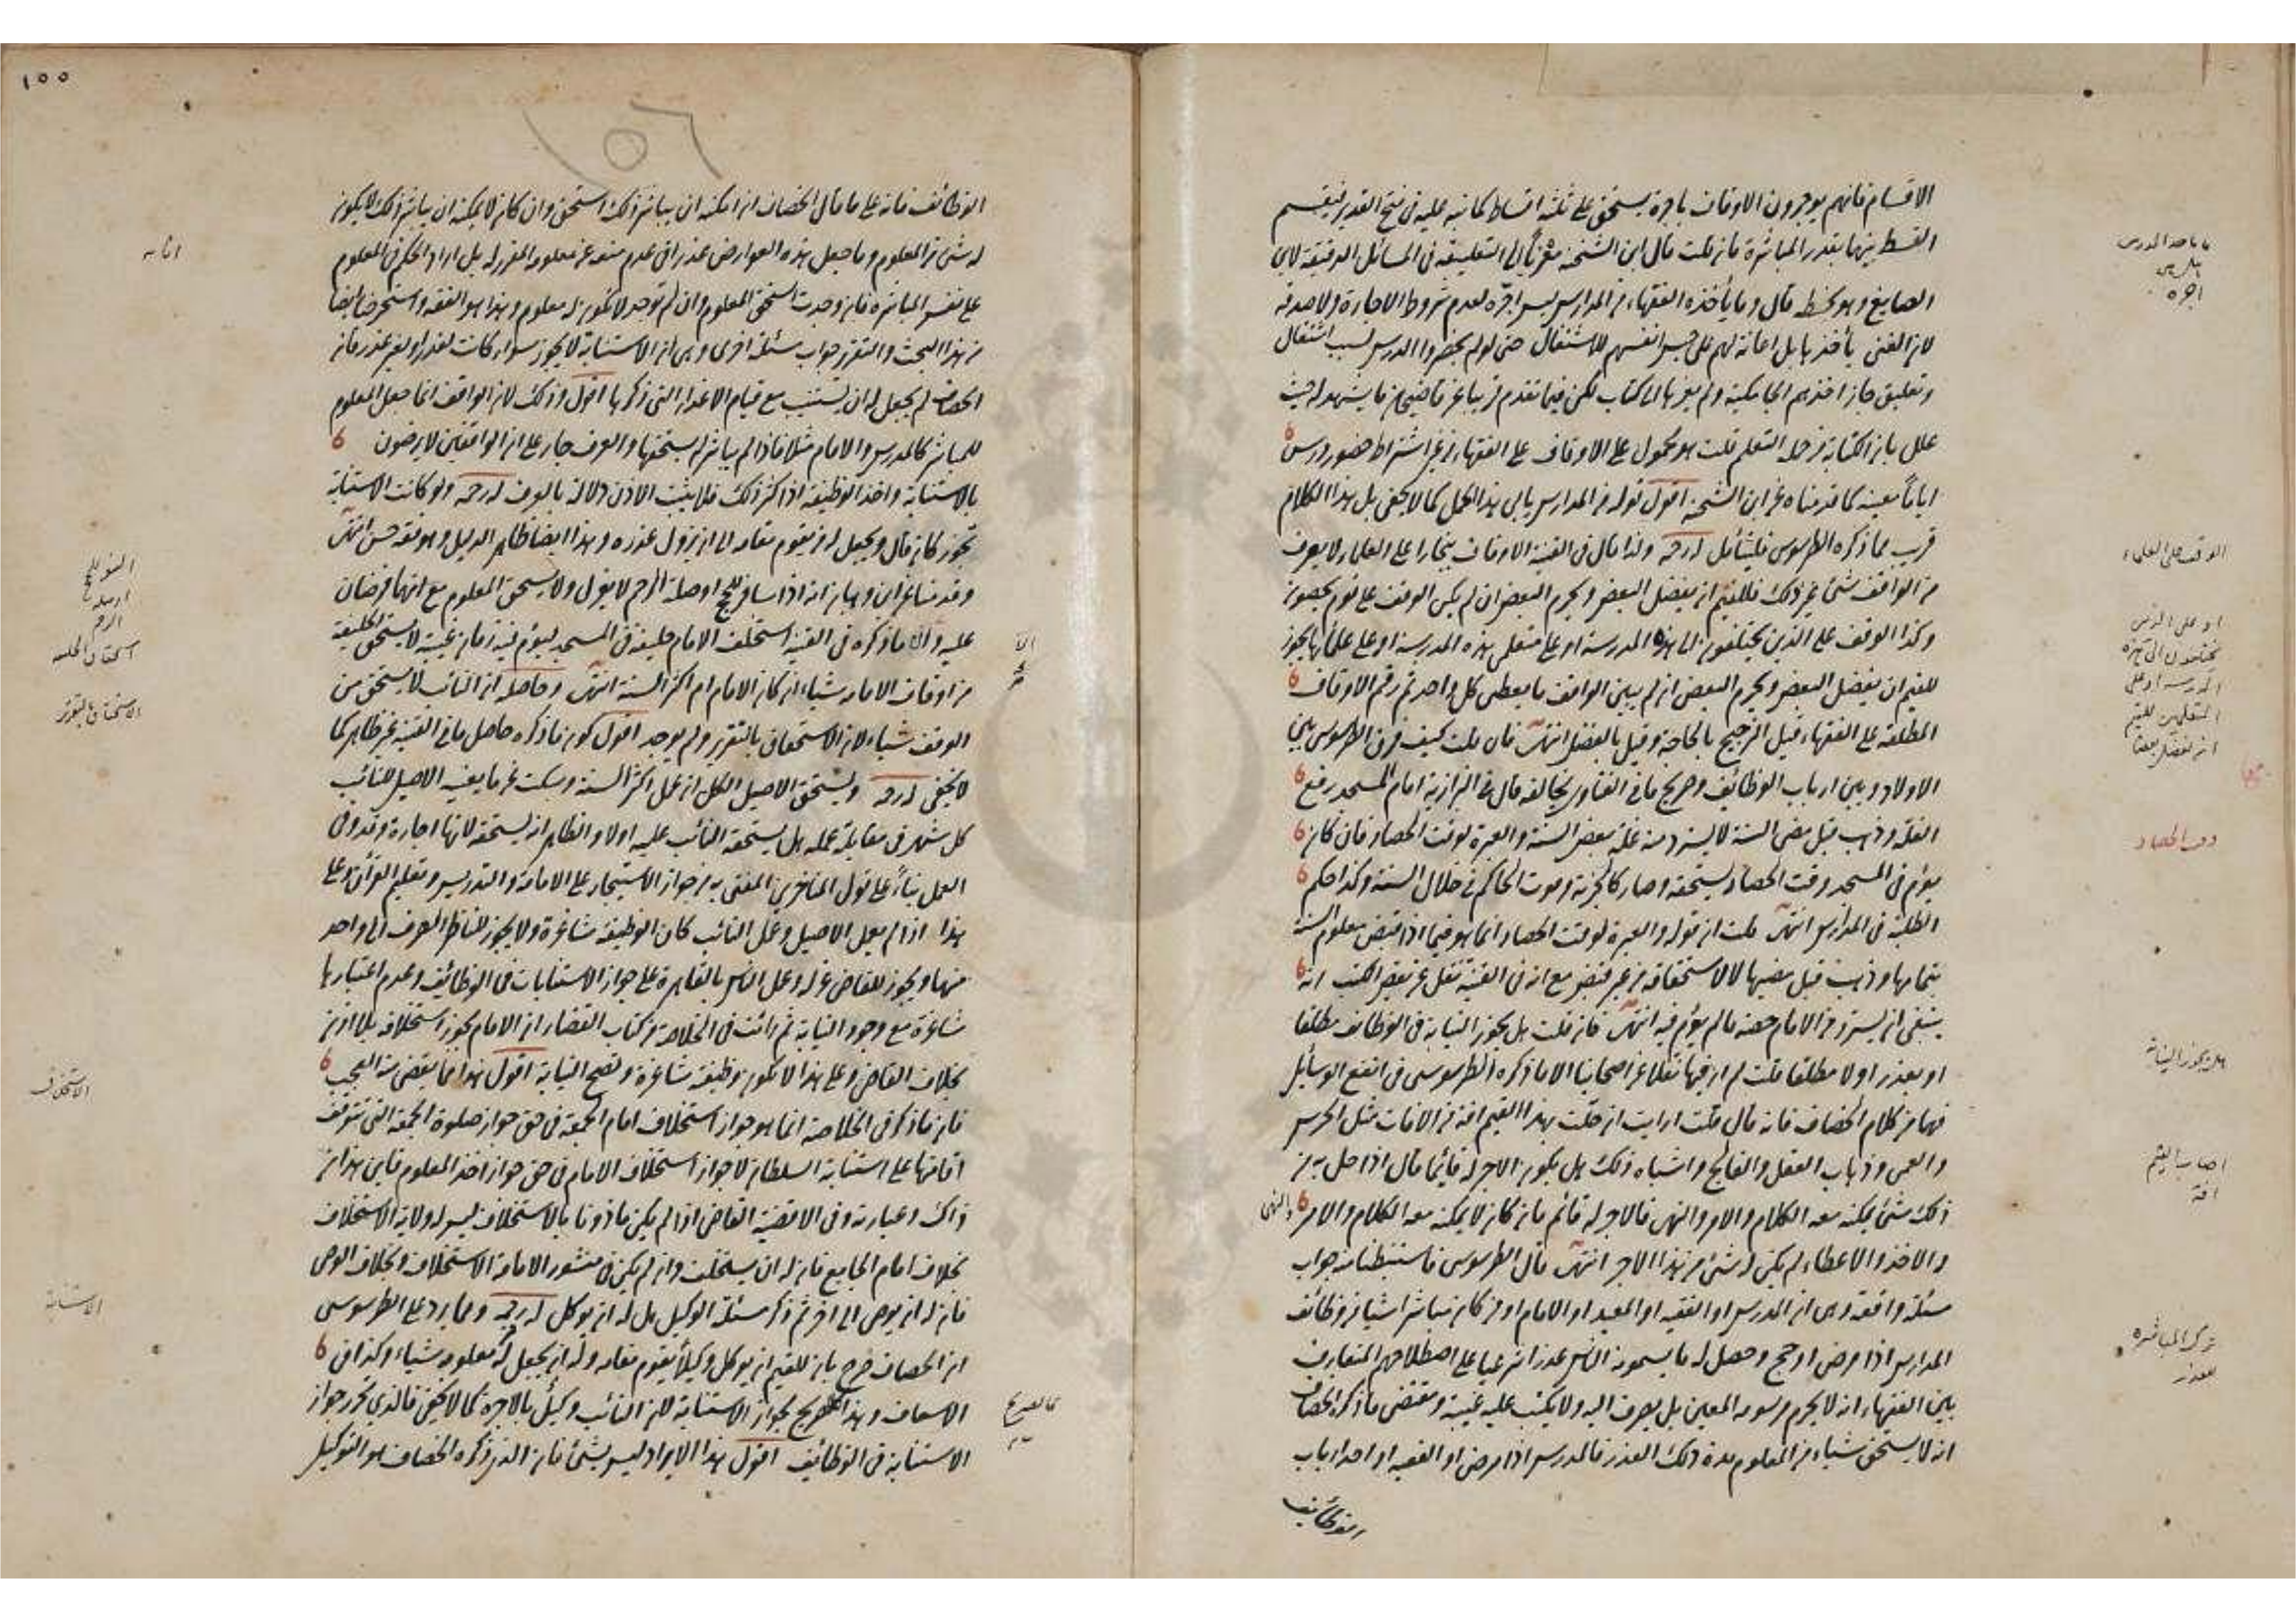 الاقسام فانهم يوجرون الاوقاف باجرة يستحق على ثلثة اقساط كما نبه عليه فى فتح القدير فيقسم
القسط بينهما بقدر المباشرة فان قلت قال ابن الشحنة معزيا الى التعليقة فى المسائل الدقيقة لابن
الصايغ وهو بخطه قال وما يأخذه الفقهاء من المدارس ليس اجرة لعدم شروط الاجارة ولا صدقة
لان الغنى يأخذها بل اعانة لهم على حبس انفسهم للاشتغال حتى لو لم يحضروا الدرس لسبب اشتغال
وتعليق جاز اخذهم الجامكية ولم يعزها الى كتاب لكن فيما تقدم قريبا عن قاضيخان ما يشهد له حيث
علل بان الكتابة من جملة التعلم قلت هو محمول على الاوقاف على الفقهاء من غير اشتراط حضور درس
اياما معينة كما قدمناه عن ابن الشحنة اقول قوله من المدارس يابى هذا الحمل كما لا يخفى بل هذا الكلام
قريب مما ذكره الطرسوسى فليتأمل له رحمه ولذا قال فى القنية الاوقاف ببخارا على العلماء لا يعرف
من الواقف شئ غير ذلك فللقيم ان يفضل البعض ويحرم البعض ان لم يكن الوقف على قوم يحصون
وكذا الوقف على الذين يختلفون الى هذه المدرسة او على متعلمى هذه المدرسة او على علمائها يجوز
للقيم ان يفضل البعض ويحرم البعض ان لم يبين الواقف ما يعطى كل واحد ثم رقم الاوقاف
المطلقة على الفقهاء قيل الترجيح بالحاجة وقيل بالفضل انتهى فان قلت كيف فرق الطرسوسى بين
الاولاد وبين ارباب الوظائف وصريح ما فى الفتاوى يخالفه قال فى البزازية امام المسجد رفع
الغلة وذهب قبل مضى السنة لا يسترد منه غلة بعض السنة والعبرة لوقت الحصاد فان كان
يؤم فى المسجد وقت الحصاد يستحقه وصار كالجزية وموت الحاكم فى خلال السنة وكذا حكم
الطلبة فى المدارس انتهى قلت ان قوله والعبرة لوقت الحصاد انما هو فيما اذا قبض معلوم السنة
بتمامها وذهب قبل مضيها لا لاستحقاقه من غير قبض مع انه فى القنية نقل عن بعض الكتب انه
ينبغى ان يسترد من الامام حصة ما لم يؤم فيه انتهى فان قلت هل يجوز النيابة فى الوظائف مطلقا
او بعذر او لا مطلقا قلت لم ار فيها نقلا عن اصحابنا الا ما ذكره الطرسوسى فى انفع الوسائل
فهما من كلام الخصاف فانه قال قلت ارايت ان حلت بهذا القيم افة من الافات مثل الخرس
والعمى وذهاب العقل والفالج واشباه ذلك هل يكون الاجر له قائما قال اذا حل به من
ذلك شئ يمكنه معه الكلام والامر والنهى فالاجر له قائم فان كان لا يمكنه معه الكلام والامر والنهى
والاخذ والاعطاء لم يكن له شئ من هذا الاجر انتهى قال الطرسوسى فاستنبطنا منه جواب
مسئلة واقعة وهى ان المدرس او الفقيه او المعيد او الامام او من كان مباشرا شيئا من وظائف
المدارس اذا مرض او حج وحصل له ما يسمونه الناس عذرا شرعيا على اصطلاحهم المتعارف
بين الفقهاء انه لا يحرم مرسومه المعين بل يصرف اليه ولا يكتب عليه غيبة ومقتضى ما ذكره الخصاف
انه لا يستحق شياء من المعلوم مدة ذلك العذر فالمدرس اذا مرض او الفقيه او احد ارباب
الوظائف
الوقف على العلماء
وقت الحصاد
هل يجوز النيابة
اصاب القيم
افة
ترك المباشرة
لعذر
١٥٥
الوظائف فانه على ما قال الخصاف ان امكنه ان يباشر ذلك استحق وان كان لا يمكنه ان يباشر ذلك لا يكون
له شئ من المعلوم وما جعل هذه العوارض عذرا فى عدم منعه عن معلومه المقرر له بل ادار الحكم فى المعلوم
على نفس المباشرة فان وجدت استحق المعلوم وان لم توجد لا يكون له معلوم وهذا هو الفقه واستخرجنا ايضا
من هذا البحث والتقرير جواب مسئلة اخرى وهى ان الاستنابة لا يجوز سواء كانت لعذر او لغير عذر فان
الخصاف لم يجعل له ان يستنيب مع قيام الاعذار التى ذكرها اقول وذلك لان الواقف انما جعل المعلوم
للمباشر كالمدرس والامام مثلا فاذا لم يباشر لم يستحقها والعرف جار على ان الواقفين لا يرضون
بالاستنابة واخذ الوظيفة اذا كثر ذلك فلا يثبت الاذن دلالة بالعرف له رحمه ولو كانت الاستنابة
تجوز كان قال ويجعل له من يقوم مقامه الى ان يزول عذره وهذا ايضا ظاهر الدليل وهو فقه حسن انتهى
وقدمنا عن ابن وهبان انه اذا سافر للحج او صلة الرحم لا يعزل ولا يستحق المعلوم مع انهما فرضان
عليه والا ما ذكره فى القنية استخلف الامام خليفة فى المسجد ليؤم فيه زمان غيبته لا يستحق الخليفة
من اوقاف الامامة شياء ان كان الامام ام اكثر السنة انتهى وحاصله ان النائب لا يستحق من
الوقف شياء لان الاستحقاق بالتقرير ولم يوجد اقول كون ما ذكره حاصل ما فى القنية غير ظاهر كما
لا يخفى له رحمه ويستحق الاصيل الكل ان عمل اكثر السنة وسكت عن ما يعينه الاصيل للنائب
كل شهر فى مقابلة عمله هل يستحقه النائب عليه او لا والظاهر انه يستحقه لانها اجارة وقد وفى
العمل بناء على قول المتاخرين المفتى به من جواز الاستيجار على الامامة والتدريس وتعليم القرآن وعلى
هذا اذا لم يعمل الاصيل وعمل النائب كان الوظيفة شاغرة ولا يجوز للناظر الصرف الى واحد
منهما ويجوز للقاضى عزله وعمل الناس بالقاهرة على جواز الاستنابات فى الوظائف وعدم اعتبارها
شاغرة مع وجود النيابة ثم رائت فى الخلاصة من كتاب القضاء ان الامام يجوز استخلافه بلا اذن
بخلاف القاضى وعلى هذا لا تكون وظيفته شاغرة وتصح النيابة اقول هذا مما يقضى منه العجب
فان ما ذكر فى الخلاصة انما هو جواز استخلاف امام الجمعة فى حق جواز صلوة الجمعة التى تتوقف
اقامتها على استنابة السلطان لا جواز استخلاف الامام فى حق جواز اخذ المعلوم فاين هذا من
ذاك وعبارته وفى الاقضية القاضى اذا لم يكن ماذونا بالاستخلاف ليس له ولاية الاستخلاف
بخلاف امام الجامع فان له ان يستخلف وان لم يكن فى منشور الامامة الاستخلاف وبخلاف الوصى
فان له ان يوصى الى اخر ثم ذكر مسئلة الوكيل هل له ان يوكل له رحمه ومما يرد على الطرسوسى
ان الخصاف صرح بان للقيم ان يوكل وكيلا يقوم مقامه وله ان يجعل له من معلومه شياء وكذا فى
الاسعاف وهذا كالتصريح بجواز الاستنابة لان النائب وكيل بالاجرة كما لا يخفى فالذى تحرر جواز
الاستنابة فى الوظائف اقول هذا الايراد ليس بشئ فان الذى ذكره الخصاف هو التوكيل
الاستخلاف
الاستنابة